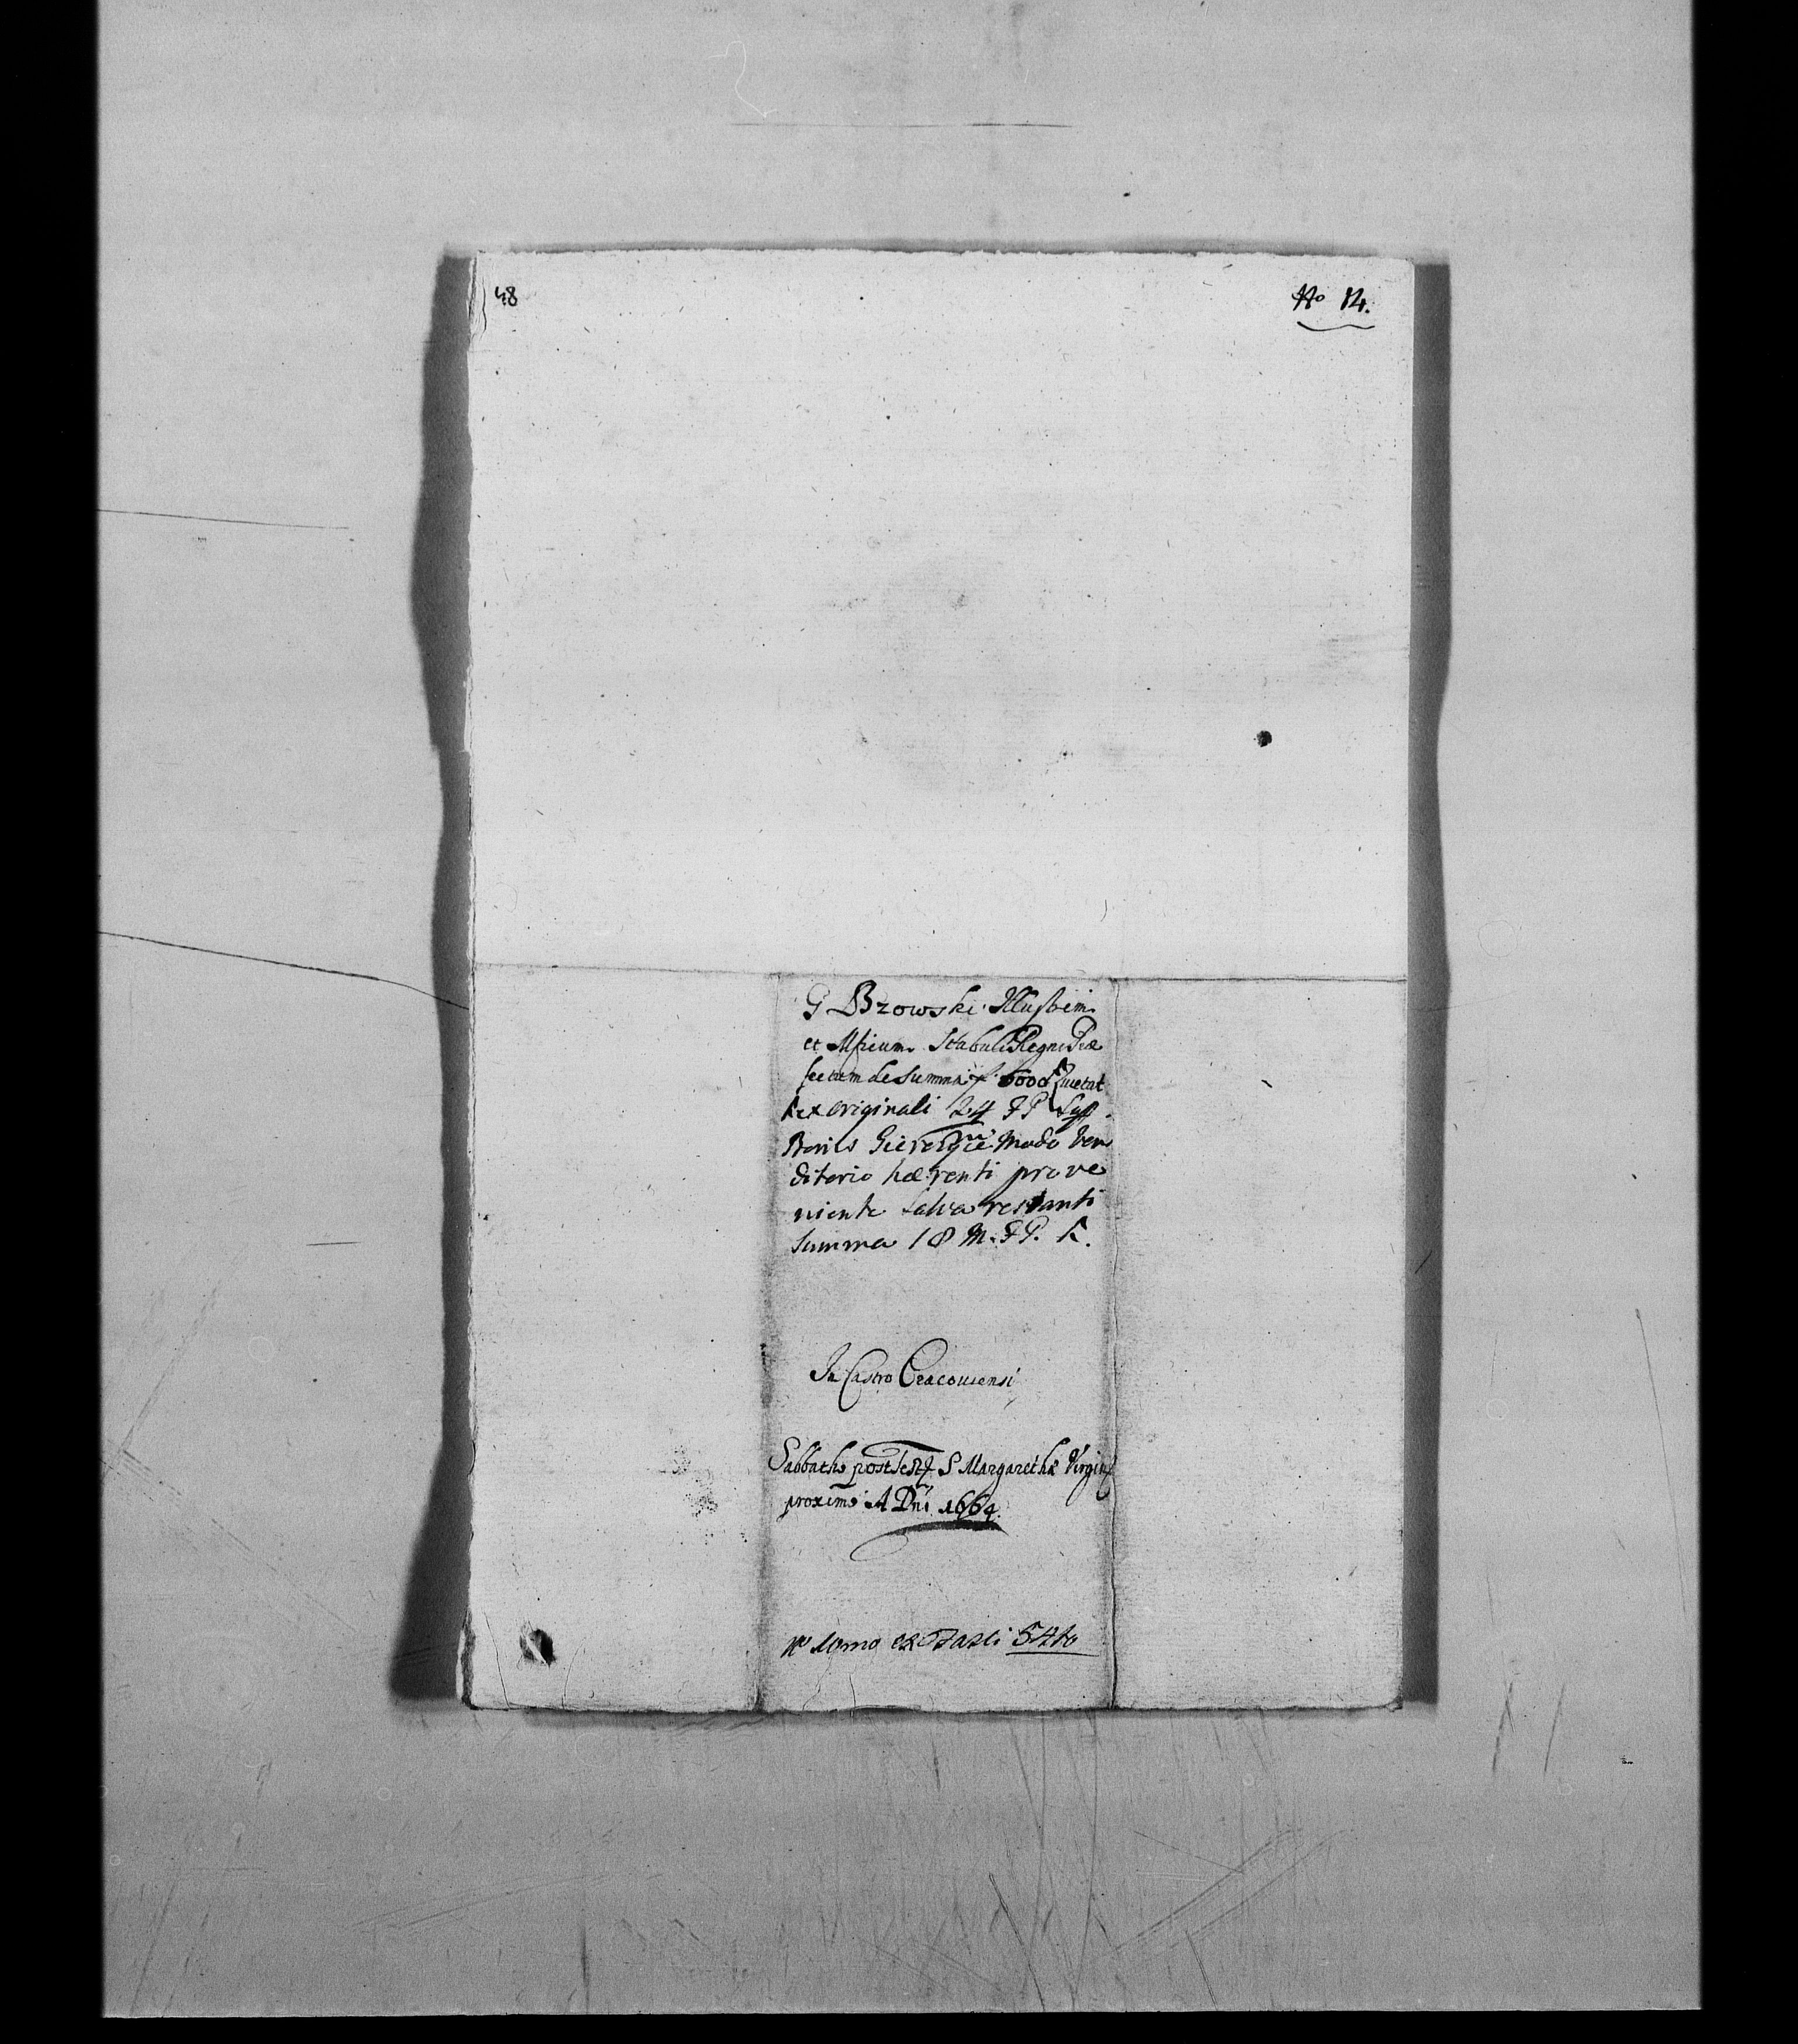 48
No 14.
G Brzowski Illustrem
et Mficum Stabuli Regni Præ
fectum de summa f. 6000 Quietat
ex originali 24
Bonis modo Ven
ditorio hærenti prove
niente salva restanti
Summa 18 M. FP.
In Castro Cracoviensi
Sabbatho post fest S Margarethæ Virginis
proximo A Dni 1664
No 19mo ex Fasci 54to